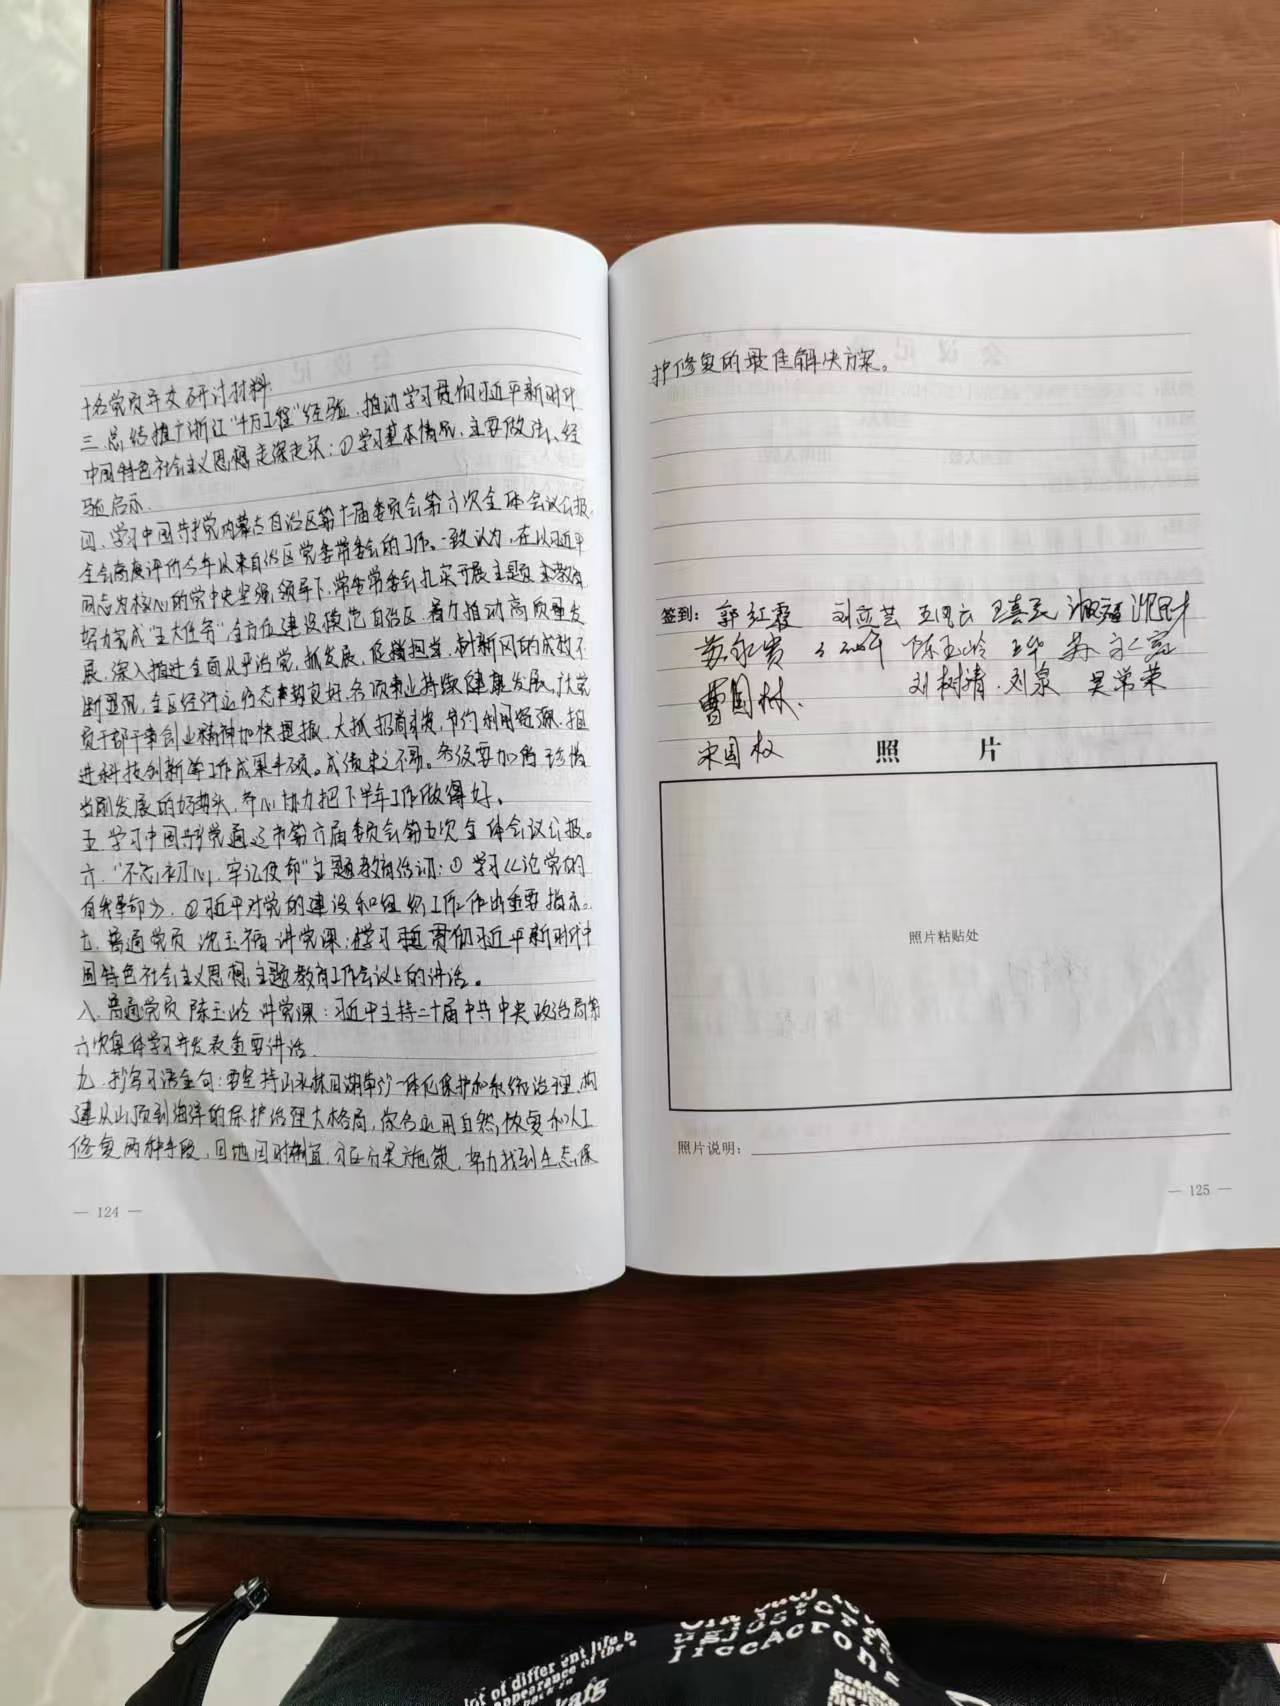 十名党员年交研讨材料
三.总结推广浙江“千万工程”经验,推动学习贯彻习近平新时代
中国特色社会主义思想走深走实:①学习基本情况、主要做法、经
验启示.
四.学习中国共产党内蒙古自治区第十一届委员会第六次全体会议公报.
全会高度评价今年以来自治区党委常委会的工作。一致认为,在以习近平
同志为核心的党中央坚强领导下,常委会扎实开展主题教育
努力完成“五大任务”全方位建设模范自治区.着力推动高质量发
展.深入推进全面从严治党,抓发展,促担当,刹新风的成效不
断显现,全区经济运行态势良好.各项事业持续健康发展,广大党
员干部干事创业精神加快提振,大抓招商引资,节约利用资源.推
进科技创新等工作成果丰硕。成绩来之不易。各级要加倍珍惜
当前发展的好势头,齐心协力把下半年工作做得好。
五.学习中国共产党通辽市第六届委员会第五次全体会议公报。
六.“不忘初心,牢记使命”主题教育培训:①学习《论党的
自我革命》,②习近平对党的建设和组织工作作出重要指示。
七.普通党员 沈玉福 讲党课:在学习贯彻习近平新时代中
国特色社会主义思想主题教育工作会议上的讲话。
八.普通党员 陈玉岭 讲党课:习近平主持二十届中共中央政治局第
六次集体学习并发表重要讲话.
九.抄写习语金句:要坚持山水林田湖草沙一体化保护和系统治理,构
建从山顶到海洋的保护治理大格局,综合运用自然恢复和人工
修复两种手段,因地因时制宜,分区分类施策,努力找到生态保
— 124 —
护修复的最佳解决方案。
签到: 郭红霞 刘亚芸 王喜民
苏永贵 陈玉岭 王华 苏永宽
曹国林. 刘树清.刘泉 吴常荣
宋国权
照 片
照片粘贴处
照片说明:
— 125 —
lot of different life b
appearance of the